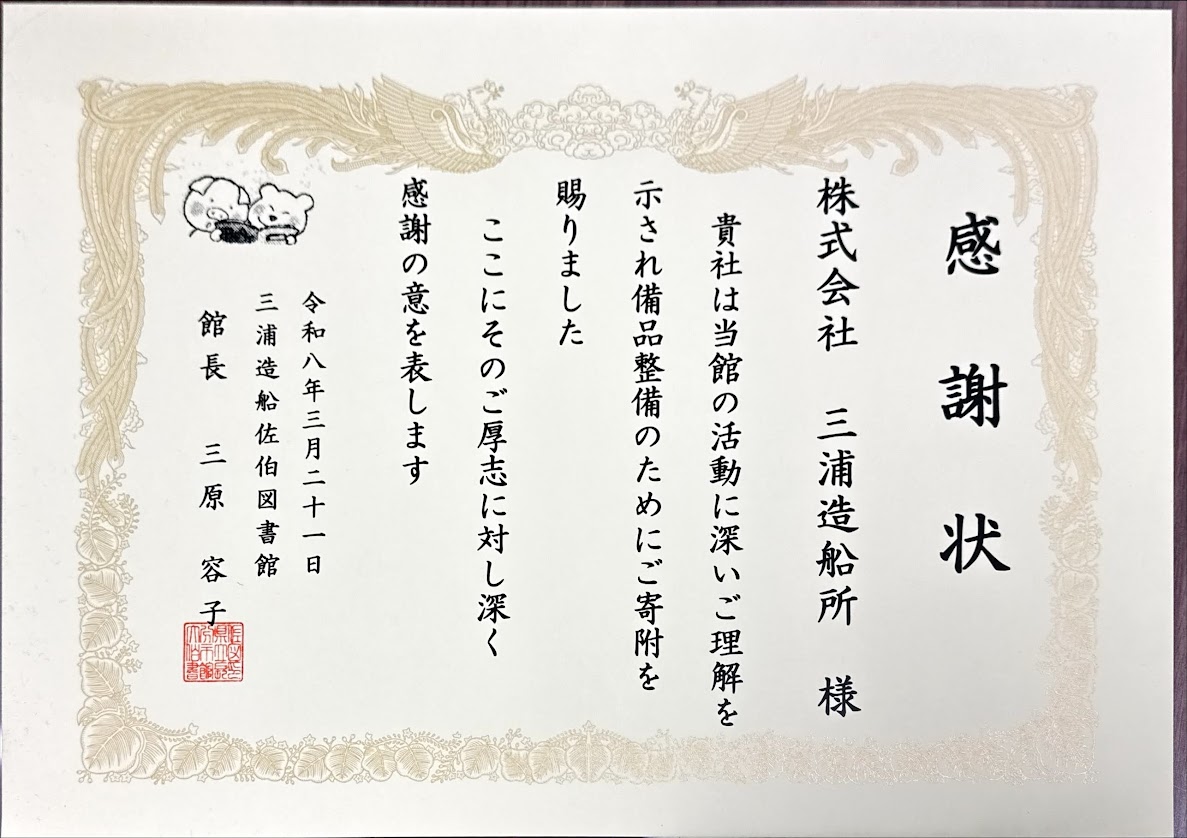 感謝状
株式会社 三浦造船所 様
貴社は当館の活動に深いご理解を
示され備品整備のためにご寄附を
賜りました
ここにそのご厚志に対し深く
感謝の意を表します
令和八年三月二十一日
三浦造船佐伯図書館
館長 三原 容子